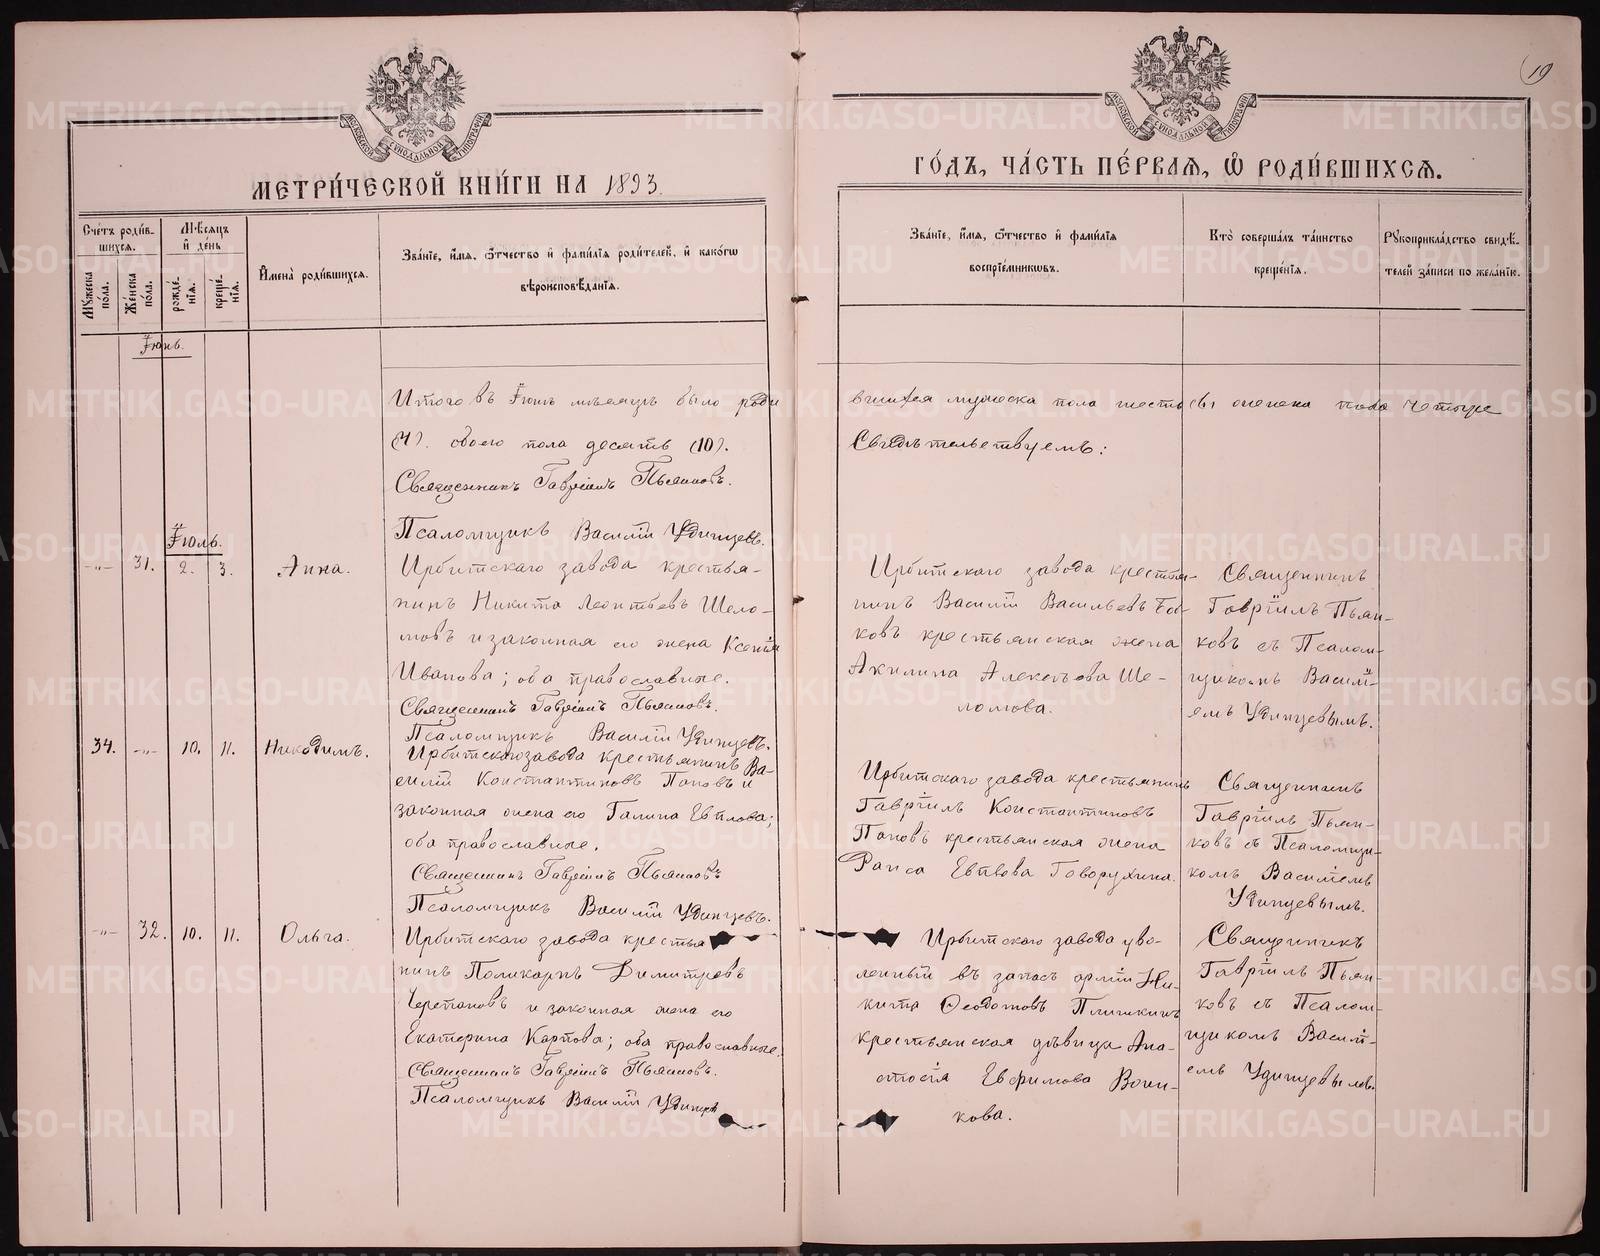 19
МОСКОВСКОЙ СѴНОДАЛЬНОЙ ТИПОГРАФІИ
МОСКОВСКОЙ СѴНОДАЛЬНОЙ ТИПОГРАФІИ
МЕТРИ́ЧЕСКОЙ КНИ́ГИ НА 1893.
ГО́ДЪ, ЧА́СТЬ ПЕ́РВАѦ, Ѡ҆ РОДИ́ВШИХСѦ.
Сче́тъ роди́в-
шихсѧ.
Мѣ́сяцъ
и҆ де́нь
Мꙋ́жеска
по́ла.
Же́нска
по́ла.
рожде́-
нїѧ.
креще́-
нїѧ.
И҆мена̀ роди́вшихсѧ.
Зва́нїе, и҆́мѧ, ѻ҆́тчество и҆ фами́лїѧ роди́телей, и҆ како́гѡ
вѣроисповѣ́данїѧ.
Зва́нїе, и҆́мѧ, ѻ҆́тчество и҆ фами́лїѧ
воспрїе́мниковъ.
Кто̀ соверша́лъ та́инство
креще́нїѧ.
Рꙋкоприкла́дство свидѣ́-
телей за́писи по жела́нїю.
Іюнь.
Итого въ Іюнѣ мѣсяцѣ было роди
вшихся мужеска пола шесть (6) женска пола четыре
(4). обоего пола десять (10).
Свидѣтельствуемъ:
Священникъ Гавріилъ Пьянковъ.
Псаломщикъ Василій Удинцевъ.
Іюль.
-"- 31. 2. 3. Анна.
Ирбитскаго завода крестья-
нинъ Никита Леонтьевъ Шело-
мовъ и законная его жена Ксенія
Иванова; оба православные.
Священникъ Гавріилъ Пьянковъ.
Псаломщикъ Василій Удинцевъ.
Ирбитскаго завода крестья-
нинъ Василій Васильевъ
ковъ крестьянская жена
Акилина Алексѣева Ше-
ломова.
Священникъ
Гавріилъ Пьян-
ковъ съ Псалом-
щикомъ Василі-
емъ Удинцевымъ.
34. -"- 10. 11. Никодимъ.
Ирбитскаго завода крестьянинъ Ва-
силій Константиновъ Поповъ и
законная жена его Галина Евплова;
оба православные.
Священникъ Гавріилъ Пьянковъ
Псаломщикъ Василій Удинцевъ.
Ирбитскаго завода крестьянинъ
Гавріилъ Константиновъ
Поповъ крестьянская жена
Раиса Евплова Говорухина.
Священникъ
Гавріилъ Пьян-
ковъ съ Псаломщи-
комъ Василіемъ
Удинцевымъ.
-"- 32. 10. 11. Ольга.
Ирбитскаго завода крестья
нинъ Поликарпъ Димитріевъ
Черепановъ и законная жена его
Екатерина Карпова; оба православные.
Священникъ Гавріилъ Пьянковъ.
Псаломщикъ Василій Удинцевъ
Ирбитскаго завода уво-
ленный въ запасъ арміи Ни-
кита Ѳеодотовъ Плишкинъ
крестьянская дѣвица Ана-
стасія Евфимова Вони-
кова.
Священникъ
Гавріилъ Пьян-
ковъ съ Псалом-
щикомъ Василі-
емъ Удинцевымъ.
METRIKI.GASO-URAL.RU